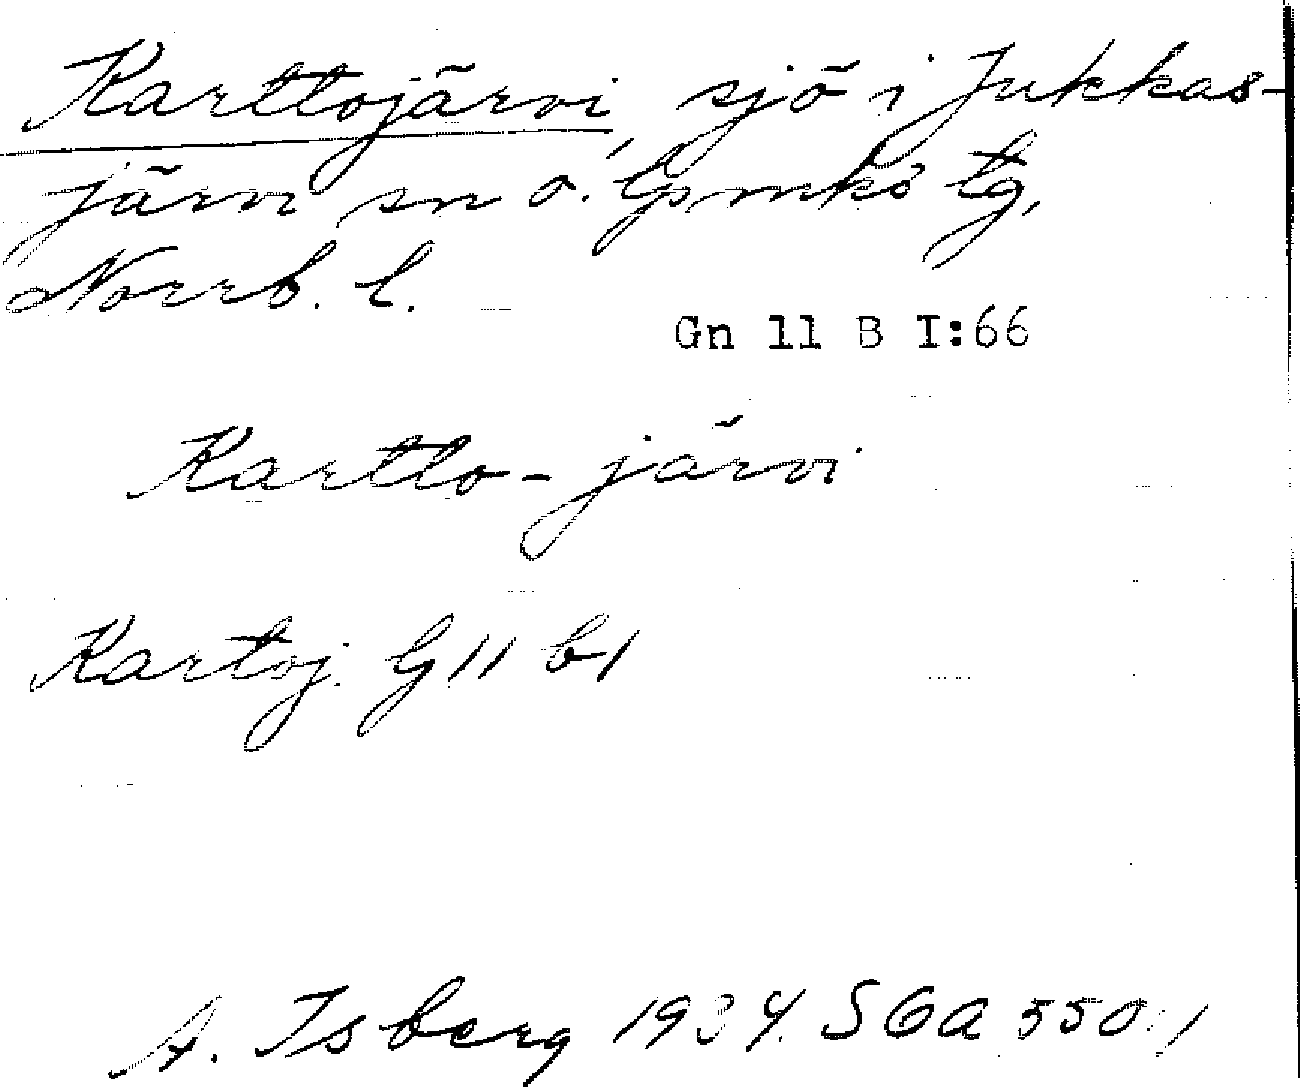 Karttojärvi, sjö i Jukkas-
järvi sn o. lpmks tg,
Norrb. l.
Gn 11 B I:66
Kartto-järvi
Kartoj. G 11 b1
A. Isberg 1934. SGA 550:1